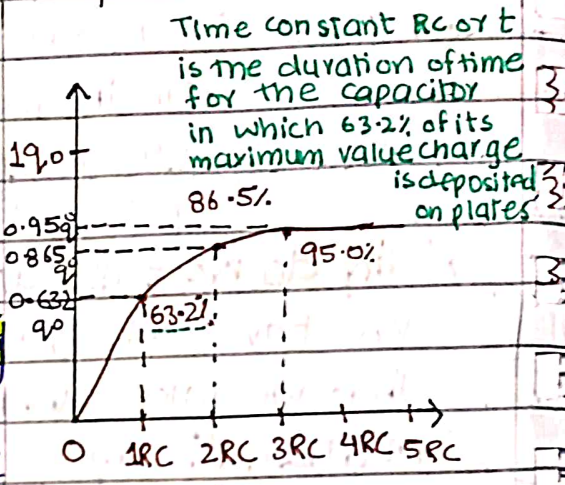 Time constant RC or t
is the duration of time
for the capacitor
in which 63.2% of its
maximum value charge
is deposited
on plates
1q0
86.5%
0.95q0
0.865
q0
95.0%
0.632
q0
63.2%
0 1RC 2RC 3RC 4RC 5RC